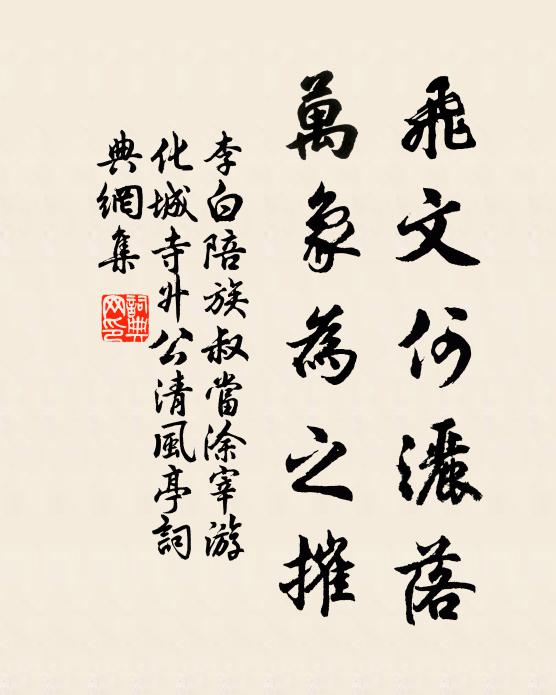 飛文何灑落
萬象為之摧
李白陪族叔當涂宰游
化城寺升公清風亭詞
典網集
詞典網印